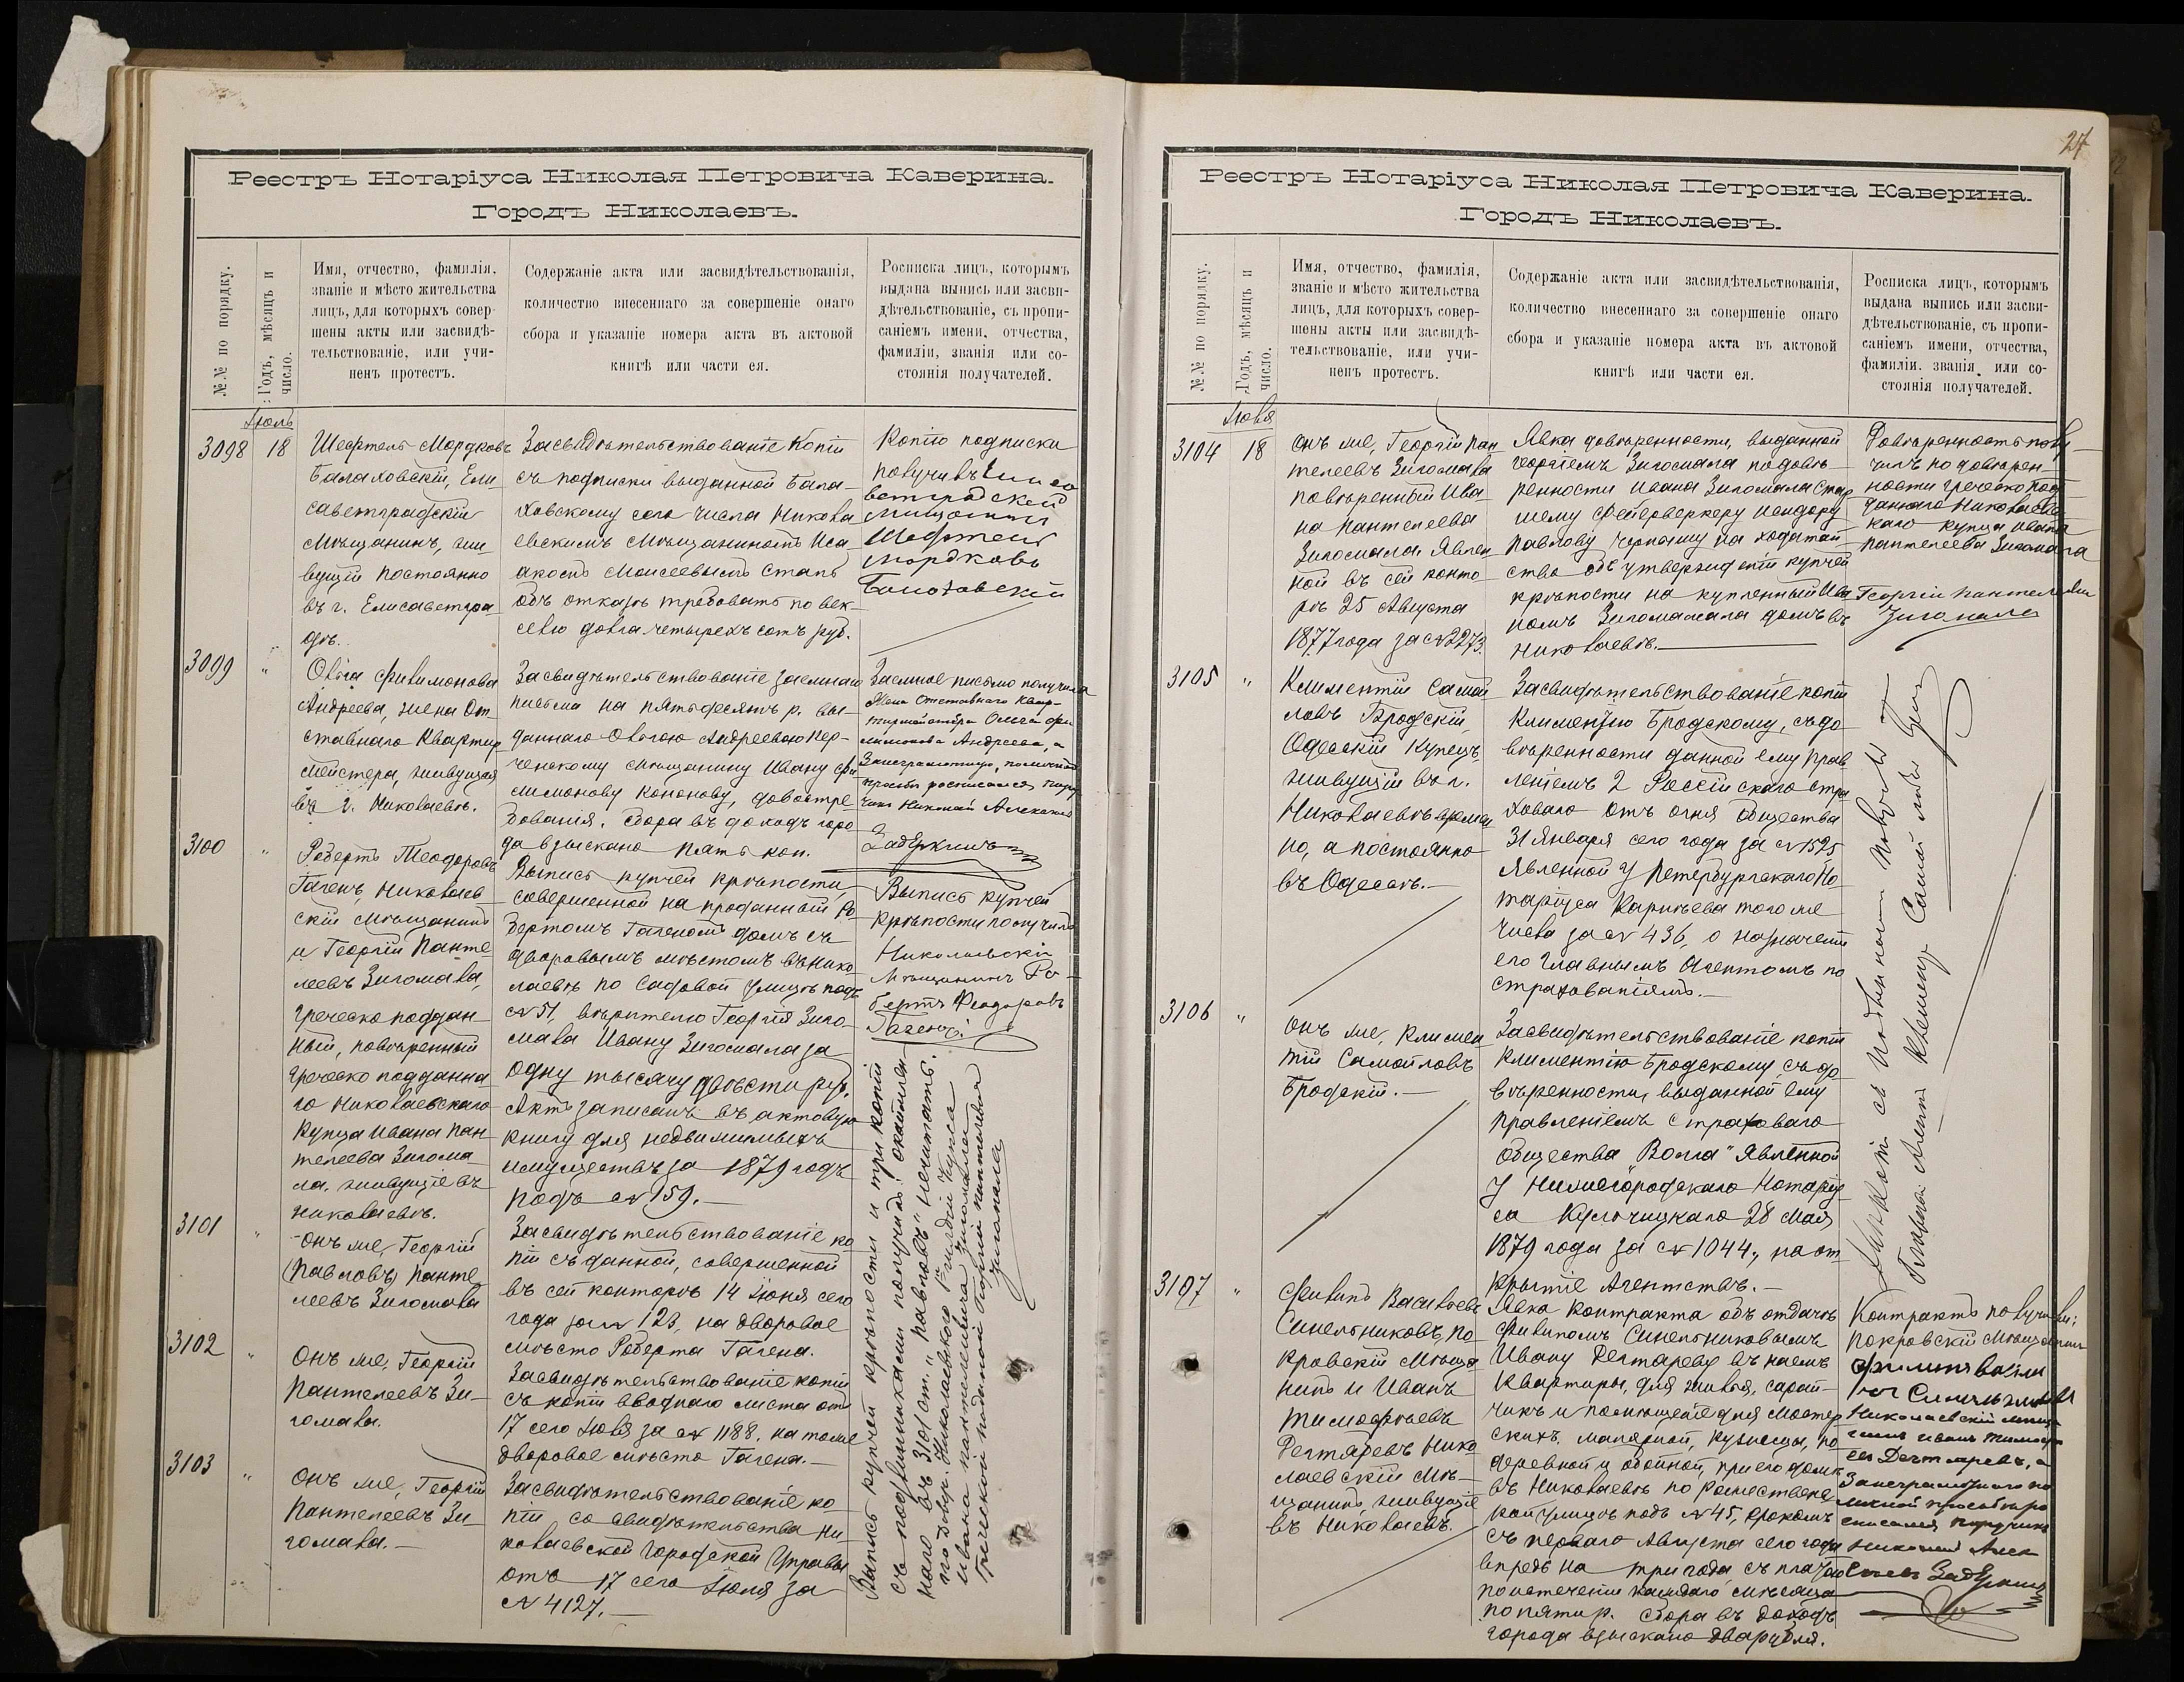 Реестръ Нотаріуса Николая Петровича Каверина.
Городъ Николаевъ.
№№ по порядку.
Годъ, мѣсяцъ и
число.
Имя, отчество, фамилія,
званіе и мѣсто жительства
лицъ, для которыхъ совер-
шены акты или засвидѣ-
тельствованіе, или учи-
ненъ протестъ.
Содержаніе акта или засвидѣтельствованія,
количество внесеннаго за совершеніе онаго
сбора и указаніе номера акта въ актовой
книгѣ или части ея.
Росписка лицъ, которымъ
выдана выпись или засви-
дѣтельствованіе, съ пропи-
саніемъ имени, отчества,
фамиліи, званія или со-
стоянія получателей.
Іюль
3098
18
Шефтель Мордковъ
Балаховскій, Ели
саветградскій
Мѣщанинъ, жи
вущій постоянно
въ г. Елисаветгра
дѣ.
Засвидѣтельствованіе копіи
съ подписки выданной Бала
ховскому сего числа Никола
евскимъ Мѣщаниномъ Иса
акомъ Моисеевымъ Стапъ
объ отказѣ требовать по век
селю долга четырехъ сотъ руб.
Копію подписки
получилъ Елиса
ветградскій
Мѣщанинъ
Шефтель
Мордковъ
Балаховскій
3099
"
Ольга Филимонова
Андреева, жена От
ставнаго Квартир
мейстера, живущая
въ г. Николаевѣ.
Засвидѣтельствованіе заемнаго
письма на пятьдесятъ р. вы
даннаго Ольгою Андреевою Кер
ченскому мѣщанину Ивану Фи
лимонову Кононову, довостре
бованія. Сбора въ доходъ горо
да взыскано пять коп.
Заемное письмо получила
Жена Отставнаго Квар
тирмейстера Ольга Фи
лимонова Андреева, а
за неграмотную, по личной
просьбѣ росписался Пору
чикъ Николай Алексѣевъ
3100
"
Робертъ Теодоровъ
Гагенъ, Николаев
скій Мѣщанинъ
и Георгій Панте
леевъ Зигомала,
греческо поддан
ный, повѣренный
греческо подданна
го Николаевскаго
Купца Ивана Пан
телеева Зигома
ла, живущіе въ
Николаевѣ.
Выпись купчей крѣпости,
совершенной на проданный Ро
бертомъ Гагеномъ домъ съ
дворовымъ мѣстомъ въ Нико
лаевѣ по Садовой улицѣ подъ
№ 51, вѣрителю Георгія Зиго
мала Ивану Зигомала за
одну тысячу двѣсти руб.
Актъ записанъ въ актовую
книгу для недвижимыхъ
имуществъ за 1879 годъ
подъ № 159.
Выпись купчей
крѣпости получилъ
Николаевскій
Мѣщанинъ Ро
бертъ Феодоровъ
Гагенъ.
3101
"
Онъ же, Георгій
(Павловъ) Панте
леевъ Зигомала
Засвидѣтельствованіе ко
піи съ данной, совершенной
въ сей конторѣ 14 Іюня сего
года за № 123, на дворовое
мѣсто Роберта Гагена.
3102
"
Онъ же, Георгій
Пантелеевъ Зи
гомала.
Засвидѣтельствованіе копіи
съ копіи вводнаго листа отъ
17 сего Іюля за № 1188, на тоже
дворовое мѣсто Гагена.
3103
"
Онъ же, Георгій
Пантелеевъ Зи
гомала.
Засвидѣтельствованіе ко
піи со свидѣтельства Ни
колаевской Городской Управы
отъ 17 сего Іюля за
№ 4127.
Выпись купчей крѣпости и три копіи
съ подлинниками получилъ; окаймлен
ное въ 3101 ст. "Павловъ" нечитать.
Георгій Пантелеевъ
Зигомала
27
Реестръ Нотаріуса Николая Петровича Каверина.
Городъ Николаевъ.
№№ по порядку.
Годъ, мѣсяцъ и
число.
Имя, отчество, фамилія,
званіе и мѣсто жительства
лицъ, для которыхъ совер-
шены акты или засвидѣ-
тельствованіе, или учи-
ненъ протестъ.
Содержаніе акта или засвидѣтельствованія,
количество внесеннаго за совершеніе онаго
сбора и указаніе номера акта въ актовой
книгѣ или части ея.
Росписка лицъ, которымъ
выдана выпись или засви-
дѣтельствованіе, съ пропи-
саніемъ имени, отчества,
фамиліи, званія или со-
стоянія получателей.
Іюля
3104
18
Онъ же, Георгій Пан
телеевъ Зигомала
повѣренный Ива
на Пантелеева
Зигомала, явлен
ной въ сей конто
рѣ 25 Августа
1877 года за № 2273.
Явка довѣренности, выданной
Георгіемъ Зигомала по довѣ
ренности Ивана Зигомала Стар
шему Фейерверкеру Исидору
Павлову Черному на ходатай
ство объ утвержденіи купчей
крѣпости на купленный Ива
номъ Зигомала домъ въ
Николаевѣ.
Довѣренность полу
чилъ по довѣрен
ности греческо под
даннаго Николаевс
каго купца Ивана
Пантелеева Зигомала
Георгій Пантелеевъ
Зигомала
3105
"
Климентій Самой
ловъ Бродскій,
Одесскій Купецъ,
живущій въ г.
Николаевѣ времен
но, а постоянно
въ Одессѣ.
Засвидѣтельствованіе копіи
Климентію Бродскому, съ до
вѣренности данной ему Прав
леніемъ 2 Россійскаго стра
ховаго отъ огня Общества
31 Января сего года за № 1525
явленной у Петербургскаго Но
таріуса Карпѣева того же
числа за № 436, о назначеніи
его Главнымъ Агентомъ по
страхованіямъ.
3106
"
Онъ же, Климен
тій Самойловъ
Бродскій.
Засвидѣтельствованіе копіи
Климентію Бродскому, съ до
вѣренности, выданной ему
правленіемъ страховаго
общества "Волга" явленной
у Нижегородскаго Нотаріу
са 28 Мая
1879 года за № 1044, на от
крытіе Агентствъ.
3107
"
Филипъ Васильевъ
Синельниковъ, По
кровскій Мѣща
нинъ и Иванъ
Тимофѣевъ
Дегтяревъ Нико
лаевскій Мѣ
щанинъ, живущіе
въ Николаевѣ.
Явка контракта объ отдачѣ
Филипомъ Синельниковымъ
Ивану Дегтяреву въ наемъ
квартиры, для жилья, сарай
чикъ и помѣщеніе для мастер
скихъ, малярной, кузницы, ко
деревной и обойной, при его домѣ
въ Николаевѣ по Рождественс
кой улицѣ подъ № 45, срокомъ
съ перваго Августа сего года
впредь на три года съ платою
по истеченіи каждаго мѣсяца
по пяти р. Сбора въ доходъ
города взыскано два рубля.
Контрактъ получили:
Покровскій Мѣщанинъ
Филипъ Василь
евъ Синельниковъ
Николаевскій Мѣща
нинъ Иванъ Тимофѣ
евъ Дегтяревъ, а
за неграмотнаго по
личной просьбѣ ро
списался Поручикъ
Николай Алек